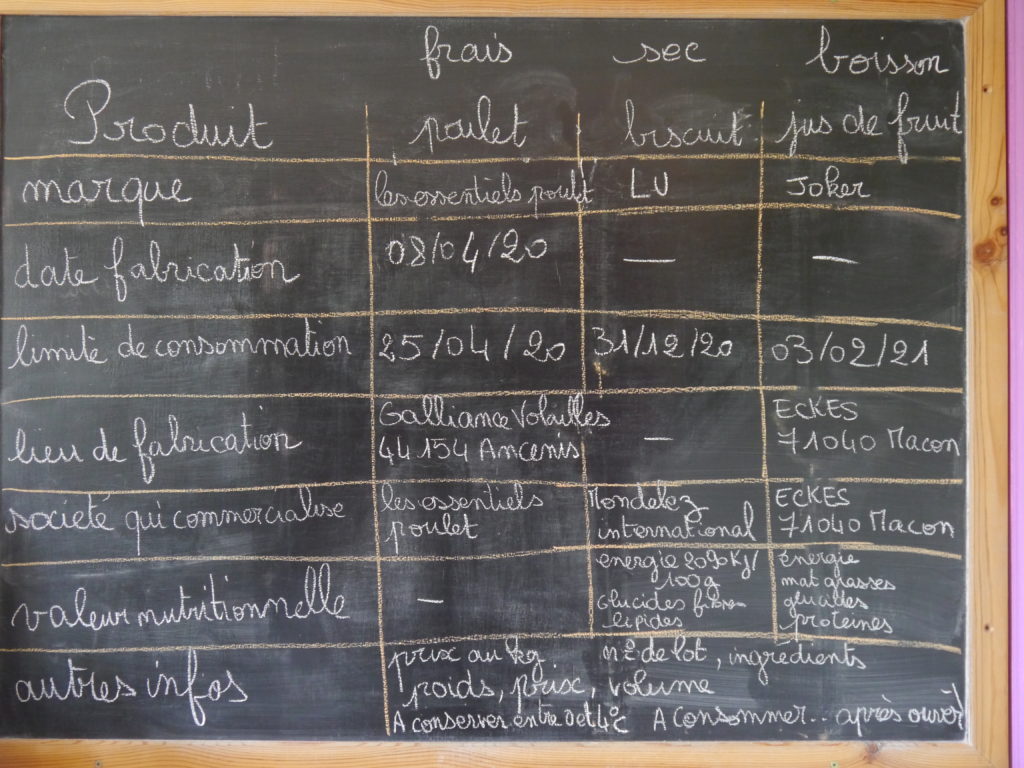 frais sec boisson
Produit poulet biscuit jus de fruit
marque les essentiels poulet LU Joker
date fabrication 08/04/20 — —
limite de consommation 25/04/20 31/12/20 03/02/21
lieu de fabrication Galliance Volailles — ECKES
44154 Ancenis 71040 Macon
société qui commercialise les essentiels Mondelez ECKES
poulet international 71040 Macon
valeur nutritionnelle — energie 2090 KJ/ énergie
100g mat grasses
Glucides fibre glucides
lipides protéines
autres infos prix au kg n° de lot, ingrédients
poids, prix, volume
A conserver entre 0 et 4°C A consommer.. après ouvert